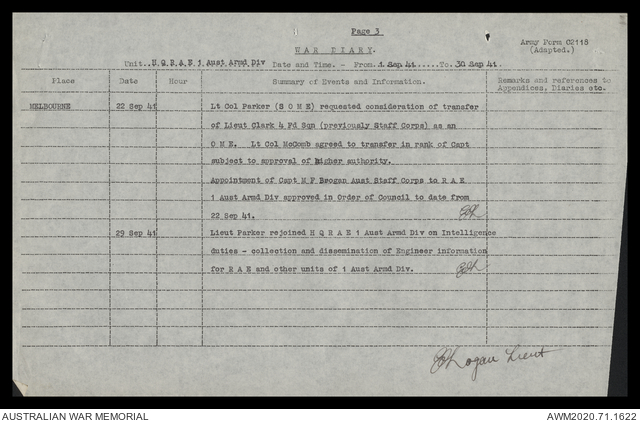 Page 3
WAR DIARY.
Army Form C2118
(Adapted.)
Unit..H Q R A E 1 Aust Armd Div Date and Time. - From.1 Sep 41.....To. 30 Sep 41.
Place Date Hour Summary of Events and Information. Remarks and references to
Appendices, Diaries etc.
MELBOURNE 22 Sep 41 Lt Col Parker (S O M E) requested consideration of transfer
of Lieut Clark 4 Fd Sqn (previously Staff Corps) as an
O M E. Lt Col McComb agreed to transfer in rank of Capt
subject to approval of higher authority.
Appointment of Capt M F Brogan Aust Staff Corps to R A E
1 Aust Armd Div approved in Order of Council to date from
22 Sep 41.
29 Sep 41 Lieut Parker rejoined H Q R A E 1 Aust Armd Div on Intelligence
duties - collection and dissemination of Engineer information
for R A E and other units of 1 Aust Armd Div.
Logan Lieut
AUSTRALIAN WAR MEMORIAL AWM2020.71.1622